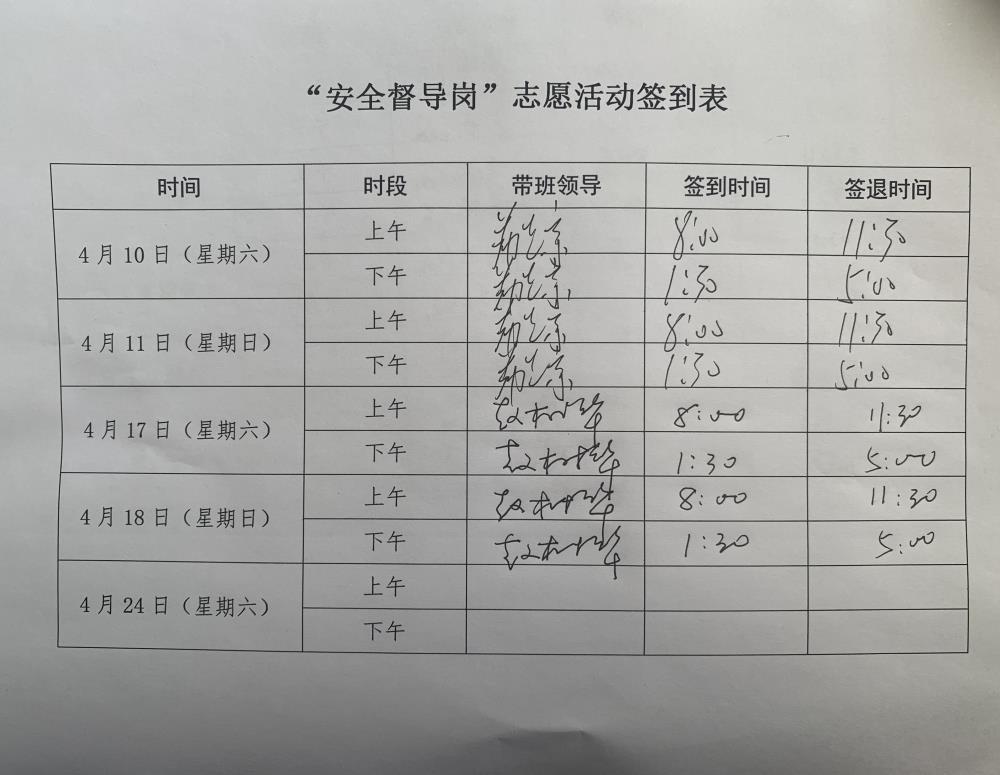 “安全督导岗”志愿活动签到表
时间 时段 带班领导 签到时间 签退时间
4月10日（星期六） 上午 8:00 11:30
下午 1:30 5:00
4月11日（星期日） 上午 8:00 11:30
下午 1:30 5:00
4月17日（星期六） 上午 8:00 11:30
下午 1:30 5:00
4月18日（星期日） 上午 8:00 11:30
下午 1:30 5:00
4月24日（星期六） 上午
下午